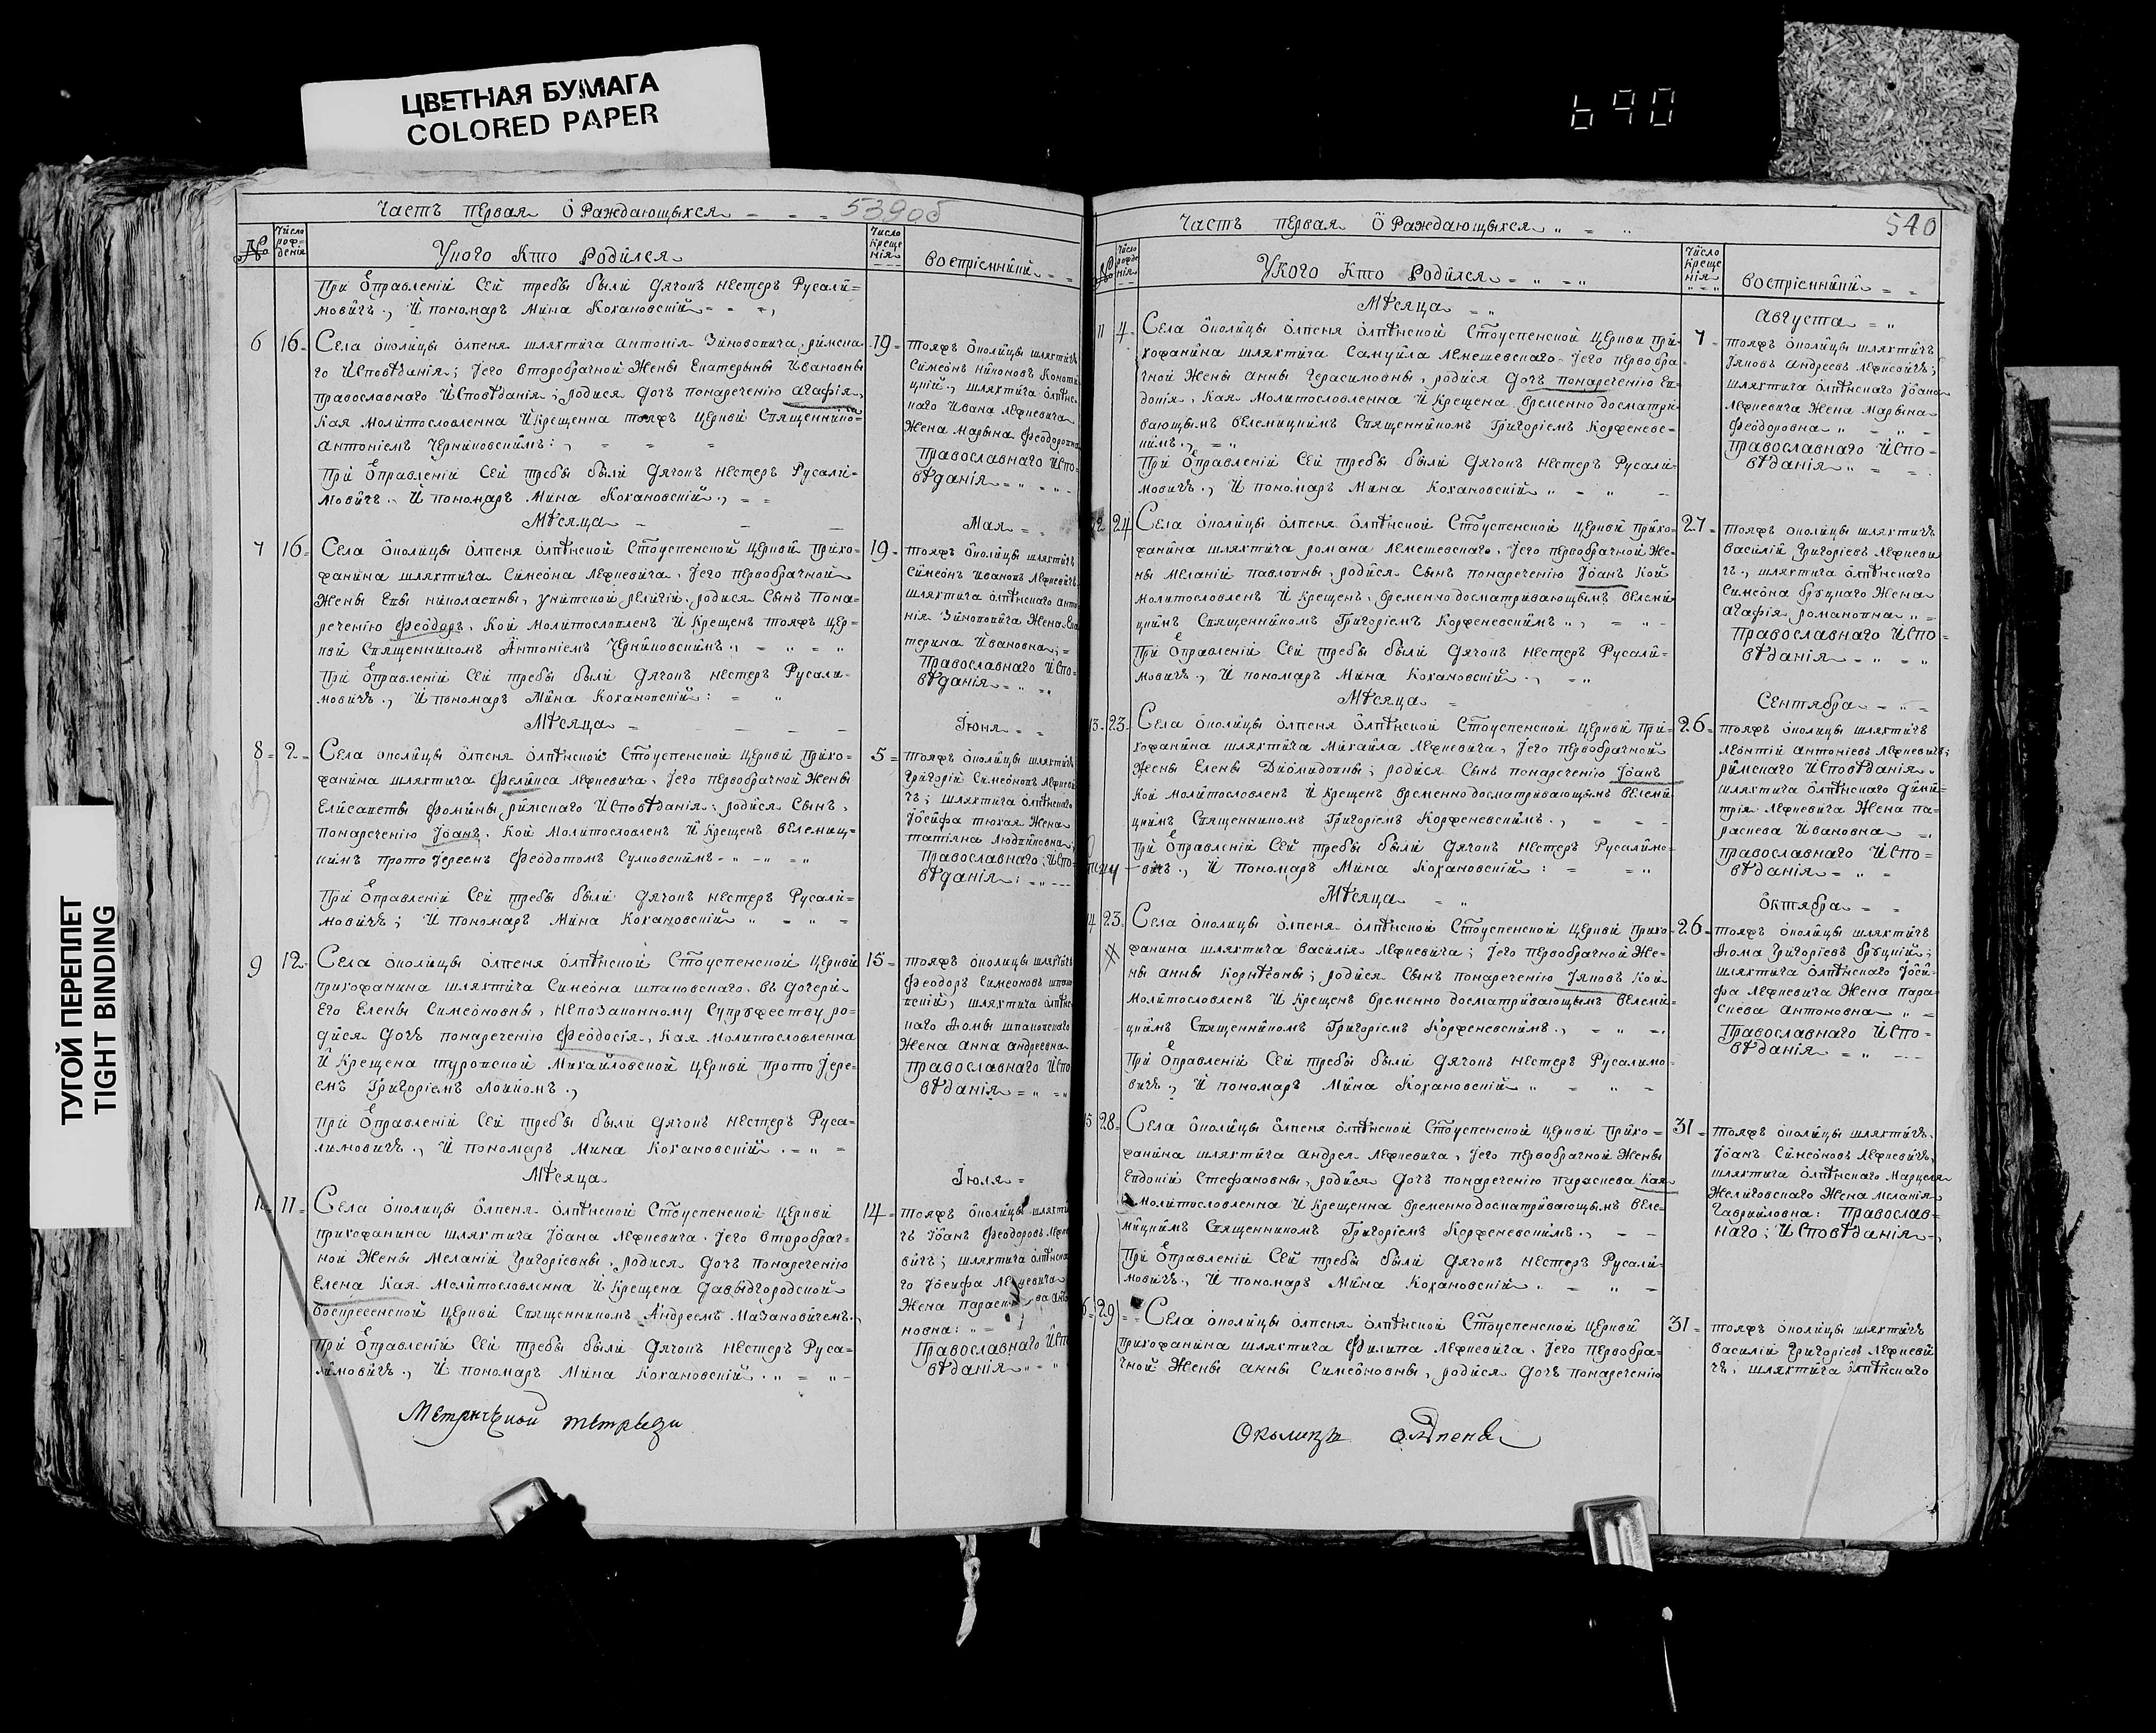 ЦВЕТНАЯ БУМАГА
COLORED PAPER
690
ТУГОЙ ПЕРЕПЛЕТ
TIGHT BINDING
Часть первая О Раждающыхся 539об
№ Число рождения
Укого Кто Родился
Число Крещенія
воспріемники
При Оправленіи Сей требы были Дячокъ Нестеръ Русали=
мовичъ., И пономаръ Мина Кохановскій
6 16 Села околицы олпеня шляхтича Антонія Зинововича римска
го Исповѣданія; Его второбрачной Жены Екатерыны Ивановны
православнаго Исповѣданія, родися дочъ понареченію Агафія,
Кая Молитвословленна И Крещенна тояжъ церкви Священнико=
Антоніемъ Черниковскимъ
При Оправленіи Сей требы были Дячокъ Нестеръ Русали=
мовичъ., И пономаръ Мина Кохановскій
19 тояжъ околицы шляхтичъ
Симеонъ
шляхтича олпѣнс=
каго Ивана Лефкевича
Жена Марына Феодоровна
Православнаго Испо=
вѣданія
Мѣсяца Мая
7 16 Села околицы олпеня олпѣнской Стоуспенской церкви прихо=
жанина шляхтича Симеона Лефкевича, Его первобрачной
Жены Евы Николаевны, Унитской релігіи, родися Сынъ пона=
реченію Феодоръ, Кой Молитвословленъ И Крещенъ тояжъ цер=
кви Священникомъ Антоніемъ Черниковскимъ.,
При Оправленіи Сей требы были Дячокъ Нестеръ Русали=
мовичъ., И пономаръ Мина Кохановскій
19 тояжъ околицы шляхтичъ
Симеонъ Ивановъ Лефкевичъ
шляхтича олпѣнскаго Анто
нія Зинововича Жена Ека
терина Ивановна;
Православнаго Испо=
вѣданія
Мѣсяца Іюня
8 2 Села околицы олпеня олпѣнской Стоуспенской церкви прихо=
жанина шляхтича Феликса Лефкевича, Его первобрачной Жены
Елисаветы Фомины римскаго Исповѣданія, родися Сынъ,
понареченію Іоанъ, Кой Молитвословленъ И Крещенъ Велемиц=
кимъ протоіереемъ Феодотомъ Сулковскимъ
При Оправленіи Сей требы были Дячокъ Нестеръ Русали=
мовичъ; И пономаръ Мина Кохановскій
5 тояжъ околицы шляхтичъ
Григорій Симеоновъ Лефкеви
чъ; шляхтича олпѣнскаго
Іосифа Жена
татіяна
Православнаго Испо=
вѣданія
9 12 Села околицы олпеня олпѣнской Стоуспенской церкви
прихожанина шляхтича Симеона шпановскаго, въ дочери
Его Елены Симеоновны, Непозаконному Супружеству ро=
дися дочъ понареченію Феодосія, Кая Молитвословленна
И Крещена туровской Михайловской церкви протоіере=
емъ Григоріемъ
При Оправленіи Сей требы были Дячокъ Нестеръ Руса=
лимовичъ., И пономаръ Мина Кохановскій
15 тояжъ околицы шляхтичъ
Феодоръ Симеоновъ шпано
вскій, шляхтича олпѣнс
каго Фомы шпановскаго
Жена Анна Андреевна
Православнаго Испо
вѣданія
Мѣсяца Іюля
10 11 Села околицы олпеня олпѣнской Стоуспенской церкви
прихожанина шляхтича Іоана Лефкевича, Его второбрач=
ной Жены Меланіи Григоріевны, родися дочъ понареченію
Елена Кая Молитвословленна И Крещена Давыдгородской
Воскресенской церкви Священникомъ Андреемъ Мазановичемъ.,
При Оправленіи Сей требы были Дячокъ Нестеръ Руса=
лимовичъ., И пономаръ Мина Кохановскій
14 тояжъ околицы шляхти
чъ Іоанъ Феодоровъ Лефке
вичъ; шляхтича олпѣнска
го Іосифа Лефкевича
Жена
новна:
Православнаго Испо
вѣданія
Метрической тетрыди
Часть первая О Раждающыхся 540
№ Число рожденія
Укого Кто Родился
Число Крещенія
воспріемники
Мѣсяца Августа
11 4 Села околицы олпеня олпѣнской Стоуспенской церкви при=
хожанина шляхтича Самуйла Лемешевскаго, Его первобра=
чной Жены Анны Герасимовны, родися дочъ понареченію Ев=
докія, Кая Молитвословленна И Крещена временнодосматри=
вающымъ Велемицкимъ Священникомъ Григоріемъ Корженевс=
кимъ.,
При Оправленіи Сей требы были Дячокъ Нестеръ Русали=
мовичъ., И пономаръ Мина Кохановскій
7 тояжъ околицы шляхтичъ
Іяковъ Андреевъ Лефкевичъ;
шляхтича олпѣнскаго Іоана
Лефкевича Жена Марына
Феодоровна
Православнаго Испо=
вѣданія
12 24 Села околицы олпеня олпѣнской Стоуспенской церкви прихо=
жанина шляхтича романа Лемешевскаго, Его первобрачной Же=
ны Меланіи павловны, родися Сынъ понареченію Іоанъ Кой
Молитвословленъ И Крещенъ, временнодосматривающымъ Велеми=
цкимъ Священникомъ Григоріемъ Корженевскимъ
При Оправленіи Сей требы были Дячокъ Нестеръ Русали=
мовичъ., И пономаръ Мина Кохановскій
27 тояжъ околицы шляхтичъ
Василій Григоріевъ Лефкеви
чъ., шляхтича олпѣнскаго
Симеона Жена
Агафія романовна
Православнаго Испо=
вѣданія
Мѣсяца Сентября
13 23 Села околицы олпеня олпѣнской Стоуспенской церкви при=
хожанина шляхтича Михайла Лефкевича, Его первобрачной
Жены Елены Діомидовны; родися Сынъ понареченію Іоанъ
Кой Молитвословленъ И Крещенъ временнодосматривающымъ Велеми
цкимъ Священникомъ Григоріемъ Корженевскимъ.,
При Оправленіи Сей требы были Дячокъ Нестеръ Русалимо=
вичъ., И пономаръ Мина Кохановскій
26 тояжъ околицы шляхтичъ
Леонтій Антоніевъ Лефкевичъ;
римскаго Исповѣданія
шляхтича олпѣнскаго Дими=
трія Лефкевича Жена Па=
раскева Ивановна
православнаго Испо=
вѣданія
Мѣсяца Октября
14 23 Села околицы олпеня олпѣнской Стоуспенской церкви прихо=
жанина шляхтича Василія Лефкевича; Его первобрачной Же=
ны Анны Корнѣевны; родися Сынъ понареченію Іяковъ Кой
Молитвословленъ И Крещенъ временнодосматривающымъ Велеми=
цкимъ Священникомъ Григоріемъ Корженевскимъ.,
При Оправленіи Сей требы были Дячокъ Нестеръ Русалимо=
вичъ., И пономаръ Мина Кохановскій
26 тояжъ околицы шляхтичъ
Фома Григоріевъ
шляхтича олпѣнскаго Іоси=
фа Лефкевича Жена Пара=
скева Антоновна
Православнаго Испо=
вѣданія
15 28 Села околицы олпеня олпѣнской Стоуспенской церкви прихо=
жанина шляхтича Андрея Лефкевича, Его первобрачной Жены
Евдокіи Стефановны, родися дочъ понареченію параскева Кая
Молитвословленна И Крещенна временнодосматривающымъ Веле=
мицкимъ Священникомъ Григоріемъ Корженевскимъ.,
При Оправленіи Сей требы были Дячокъ Нестеръ Русали=
мовичъ., И пономаръ Мина Кохановскій
31 тояжъ околицы шляхтичъ.
Іоанъ Симеоновъ Лефкевичъ,
шляхтича олпѣнскаго Марцеля
Желиговскаго Жена Меланія
Гавриловна: Православ=
наго; Исповѣданія
16 29 Села околицы олпеня олпѣнской Стоуспенской церкви
прихожанина шляхтича Филипа Лефкевича, Его первобра=
чной Жены Анны Симеоновны, родися дочъ понареченію
31 тояжъ околицы шляхтичъ
Василій Григоріевъ Лефкеви
чъ; шляхтича олпѣнскаго
Околицы Олпеня